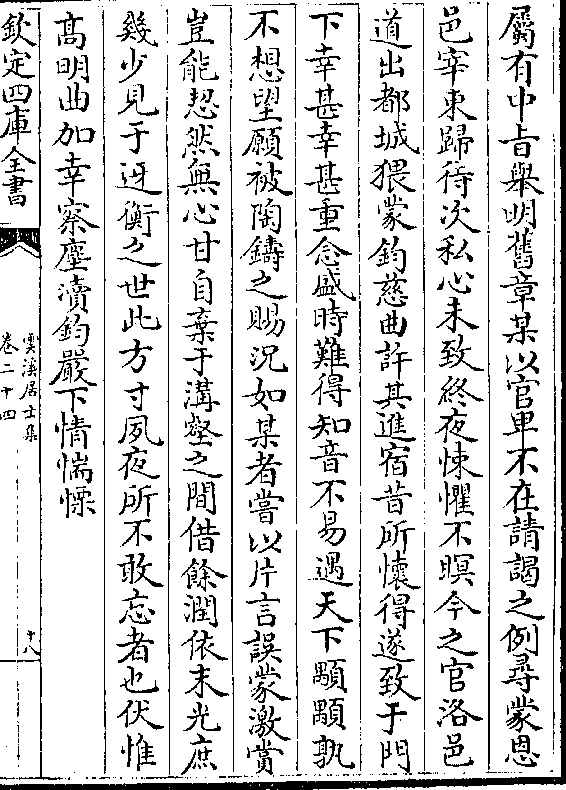 屬有中旨舉明舊章某以官卑不在請謁之例尋蒙恩
邑宰東歸待次私心未致終夜悚懼不暝今之官洛邑
道出都城猥蒙鈞慈曲許其進宿昔所懷得遂致于門
下幸甚幸甚重念盛時難得知音不易遇天下顒顒孰
不想望願被陶鑄之賜況如某者嘗以片言誤蒙激賞
豈能恝然無心甘自棄于溝壑之間借餘潤依末光庶
幾少見于迓衡之世此方寸夙夜所不敢忘者也伏惟
髙明曲加幸察塵瀆鈞嚴下情惴慄
欽定四庫全書
雲溪居士集
卷二十四
十八